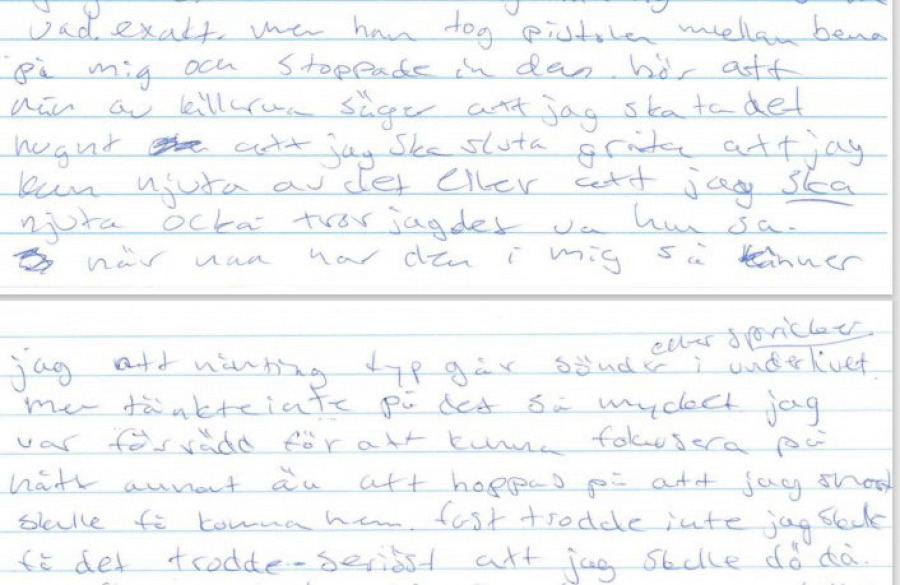 vad exakt. men han tog pistolen mellan bena
på mig och stoppade in den. hör att
nån av killarna säger att jag ska ta det
lugnt att jag ska sluta gråta att jag
kan njuta av det eller att jag ska
njuta ocká tror jag det va han sa.
när han har den i mig så känner
eller spricker
jag att nånting typ går sönder i underlivet.
men tänkte inte på det så mycket jag
var för rädd för att kunna fokusera på
nått annat än att hoppas på att jag snart
skulle få komma hem. fast trodde inte jag skulle
få det trodde seriöst att jag skulle dö då.